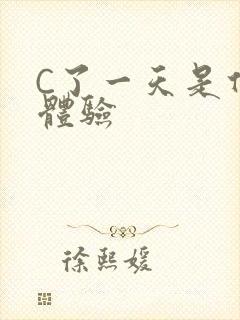 C了一天是
體驗
徐熙媛